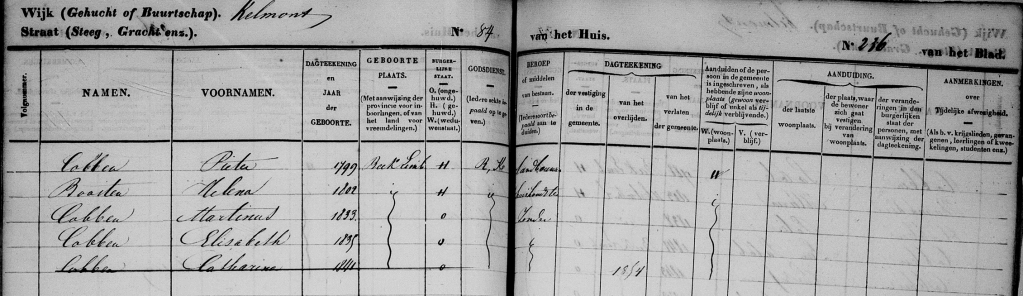 Wijk (Gehucht of Buurtschap). Kelmont
Straat (Steeg, Gracht enz.). No. 84 van het Huis. No. 216 van het Blad.
Volgnummer.
NAMEN.
VOORNAMEN.
DAGTEEKENING EN JAAR der GEBOORTE.
GEBOORTE PLAATS. (Met aanwijzing der provincie voor inboorlingen, of van het land voor vreemdelingen.)
BURGERLIJKE STAAT. O. (ongehuwd.) H. (gehuwd.) W. (weduwenstaat.)
GODSDIENST. (Ieders sekte bepaald op te geven.)
BEROEP of middelen van bestaan.
DAGTEEKENING
der vestiging in de gemeente.
van het overlijden.
van het verlaten der gemeente.
Aanduiden of de persoon in de gemeente is ingeschreven, als hebbende zijne woonplaats (gewoon verblijf) of enkel als tijdelijk verblijvende.
W. (woonplaats.) V. (verblijf.)
AANDUIDING.
der laatste woonplaats.
der plaats, waar de bewoner zich gaat vestigen bij verandering van woonplaats.
der veranderingen in den burgerlijken staat der personen, met aanwijzing der dagteekening.
AANMERKINGEN. over Tijdelijke afwezigheid. (Als b. v. krijgslieden, gevangenen, leerlingen of kweekelingen, studenten enz.)
Cobben Pieter 1799 Beek Limb H R. K. Landbouwer W
Boosten Helena 1802 H
Cobben Martinus 1833 O Zonder
Cobben Elisabeth 1835 O
Cobben Catharina 1841 O 1854